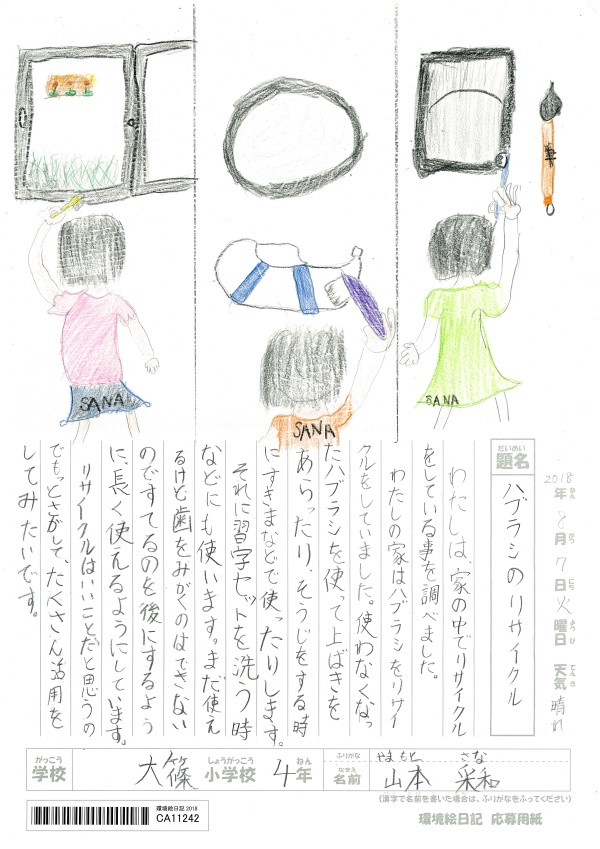 筆
SANA
SANA
SANA
2018年ねん 8月がつ 7日にち 火曜日ようび 天気てんき 晴れ
だいめい
題名
ハブラシのリサイクル
わたしは、家の中でリサイクル
をしている事を調べました。
わたしの家はハブラシをリサイ
クルをしていました。使わなくなっ
たハブラシを使って上ばきを
あらったり、そうじをする時
にすきまなどで使ったりします。
それに習字セットを洗う時
などにも使います。まだ使え
るけど歯をみがくのはできない
のですてるのを後にするよう
に、長く使えるようにしています。
リサイクルはいいことだと思うの
でもっとさがして、たくさん活用を
してみたいです。
がっこう
学校
大篠 小学校 しょうがっこう 4年ねん
ふりがな やまもと さな
なまえ
名前 山本 采和
(漢字で名前を書いた場合は、ふりがなをふってください)
環境絵日記 応募用紙
環境絵日記 2018
CA11242